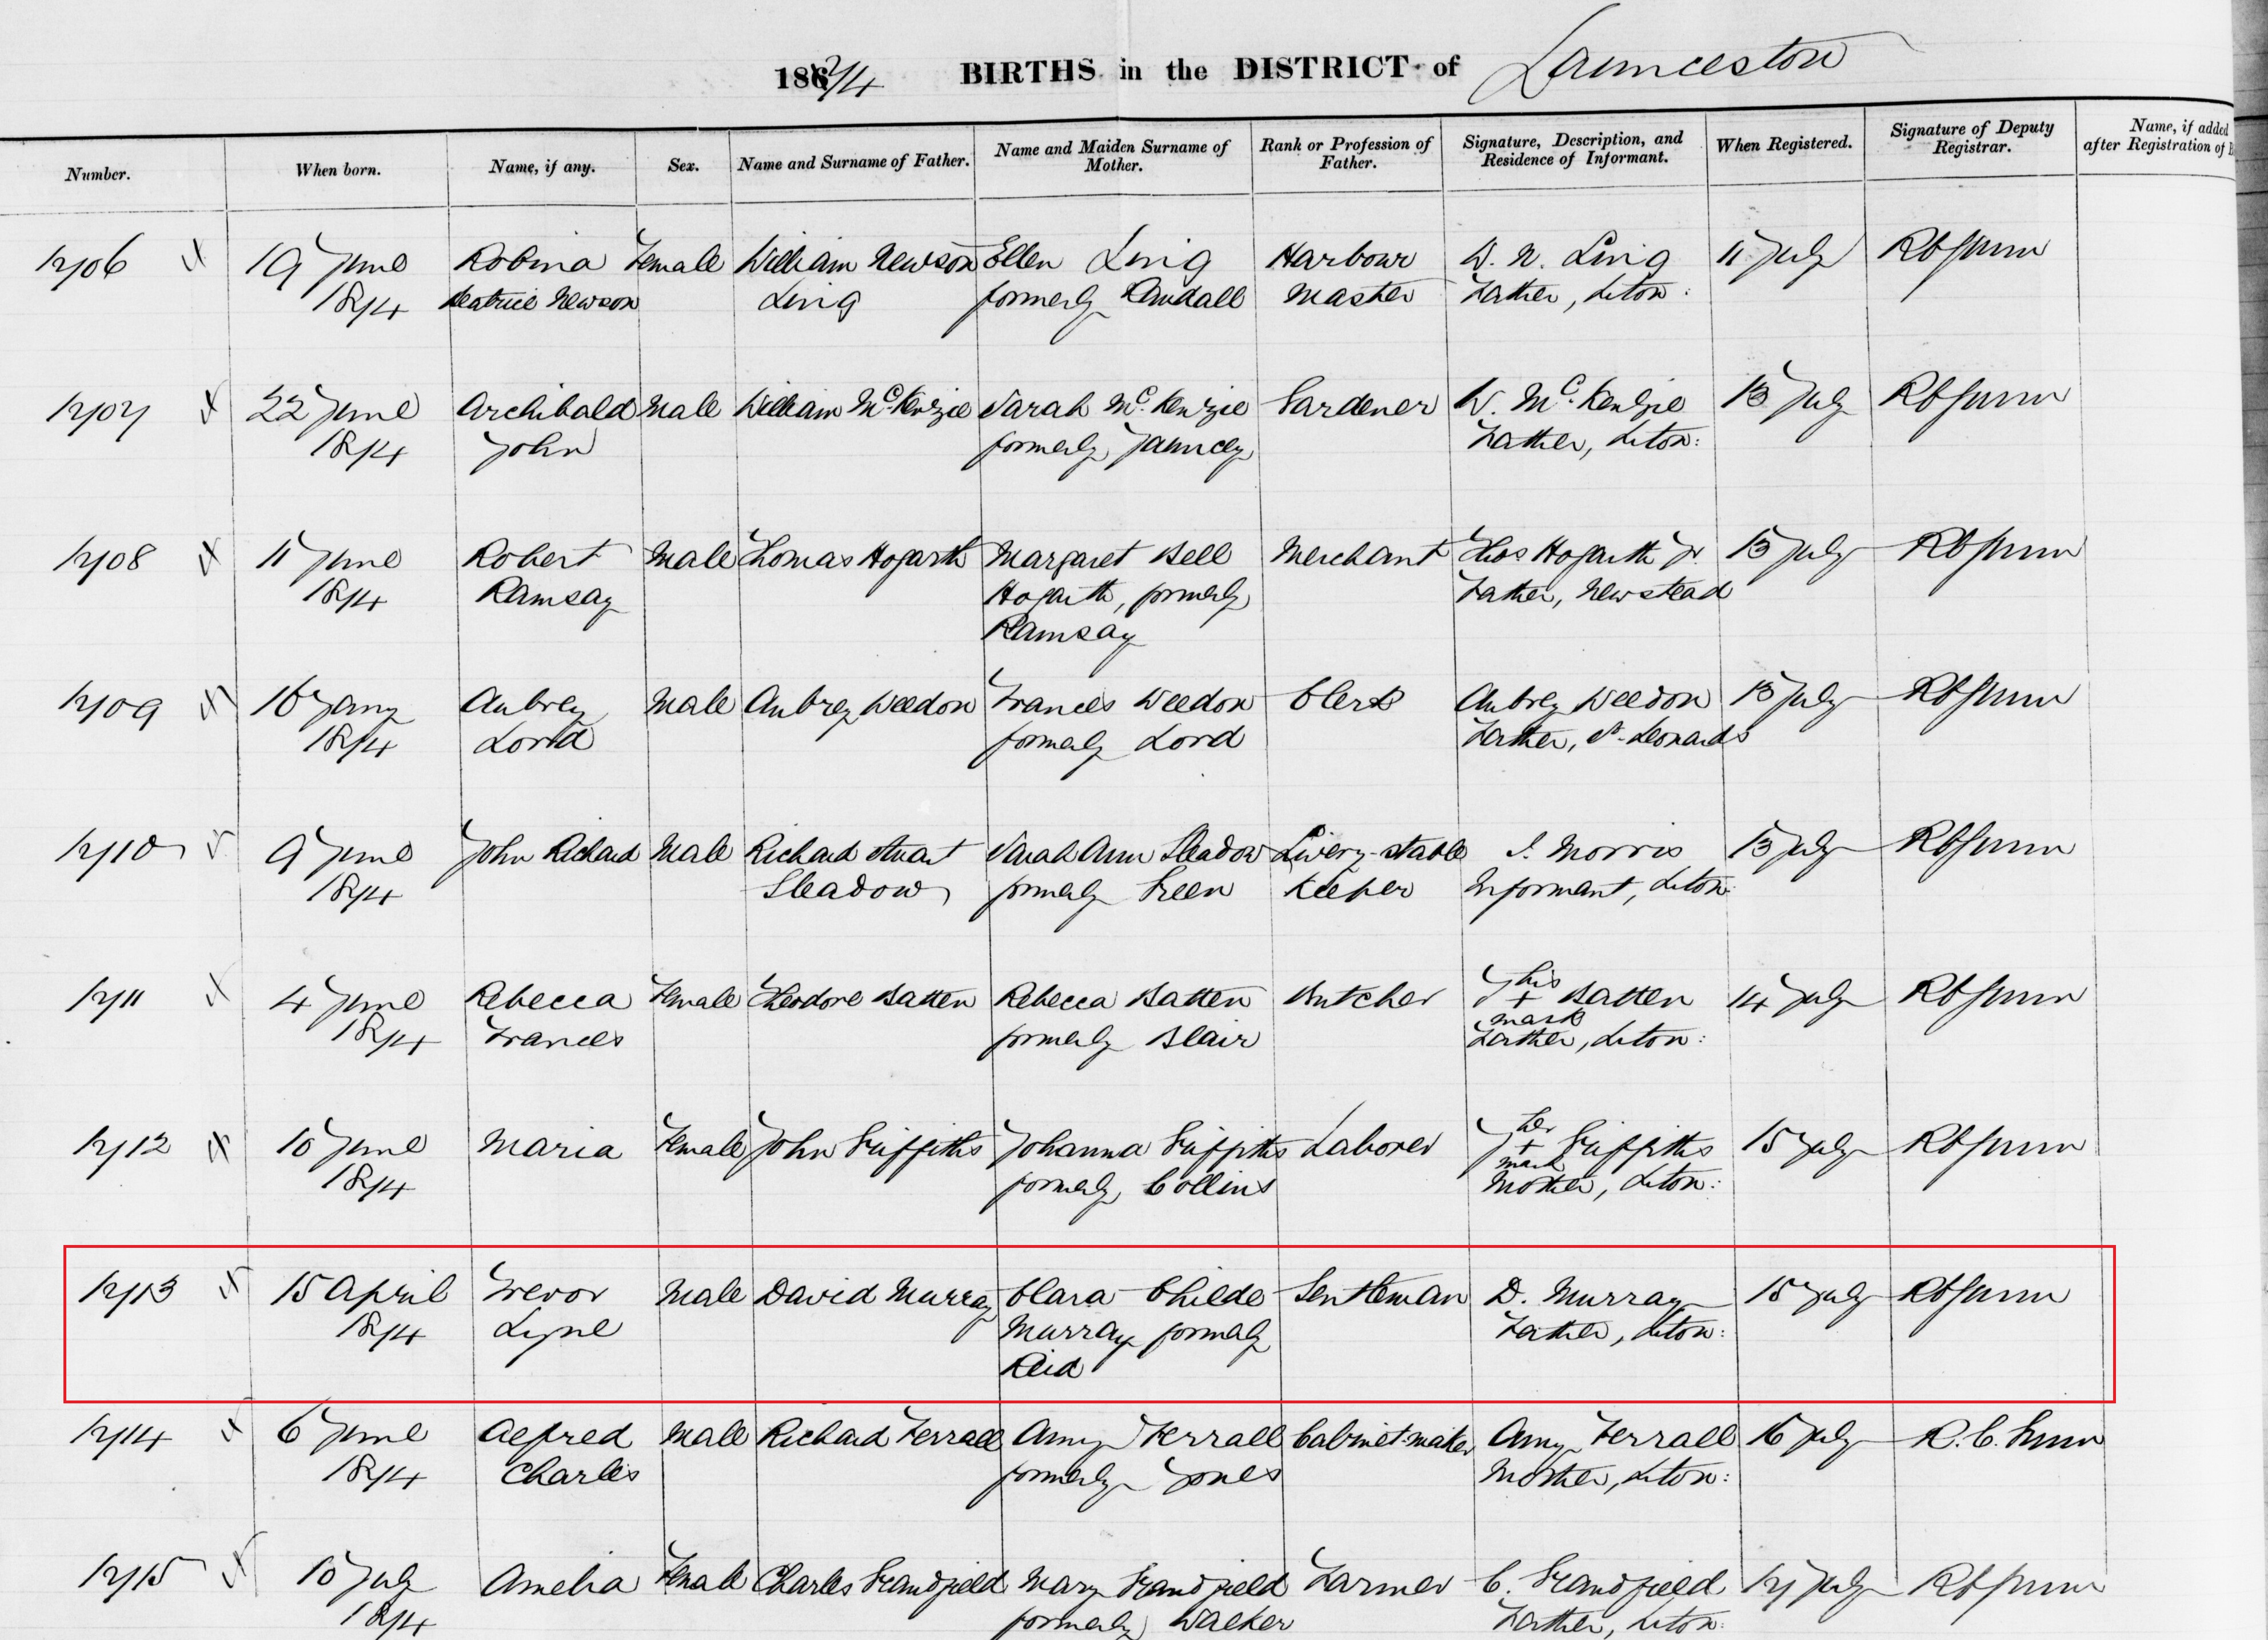 1874 BIRTHS in the DISTRICT of Launceston
Number. When born. Name, if any. Sex. Name and Surname of Father. Name and Maiden Surname of Mother. Rank or Profession of Father. Signature, Description, and Residence of Informant. When Registered. Signature of Deputy Registrar. Name, if added after Registration of
1706 19 June Robina Female William Newson Ellen Ling Harbour W. N. Ling 11 July RCGunn
1874 Beatrice Newson Ling formerly Randall Master Father, Lton:
1707 22 June Archibald Male William McKenzie Sarah McKenzie Gardener W. McKenzie 13 July RCGunn
1874 John formerly Yauncey Father, Lton:
1708 11 June Robert Male Thomas Hogarth Margaret Bell Merchant Thos Hogarth Jr. 13 July RCGunn
1874 Ramsay Hogarth, formerly Father, Newstead
Ramsay
1709 16 Jany Aubrey Male Aubrey Weedon Frances Weedon Clerk Aubrey Weedon 13 July RCGunn
1874 Lord formerly Lord Father, St. Leonards
1710 9 June John Richard Male Richard Stuart Sarah Ann Sleadow Livery-stable S. Morris 13 July RCGunn
1874 Sleadow formerly Green Keeper Informant, Lton:
1711 4 June Rebecca Female Theodore Batten Rebecca Batten Butcher T his + mark Batten 14 July RCGunn
1874 Frances formerly Blair Father, Lton:
1712 10 June Maria Female John Griffiths Johanna Griffiths Laborer J her + mark Griffiths 15 July RCGunn
1874 formerly Collins Mother, Lton:
1713 15 April Trevor Male David Murray Clara Childe Gentleman D. Murray 15 July RCGunn
1874 Lyne Murray formerly Father, Lton:
Reid
1714 6 June Alfred Male Richard Terrall Amy Terrall Cabinet-maker Amy Terrall 16 July R.C.Gunn
1874 Charles formerly Jones Mother, Lton:
1715 10 July Amelia Female Charles Grandfield Mary Grandfield Farmer C. Grandfield 17 July RCGunn
1874 formerly Walker Father, Lton: